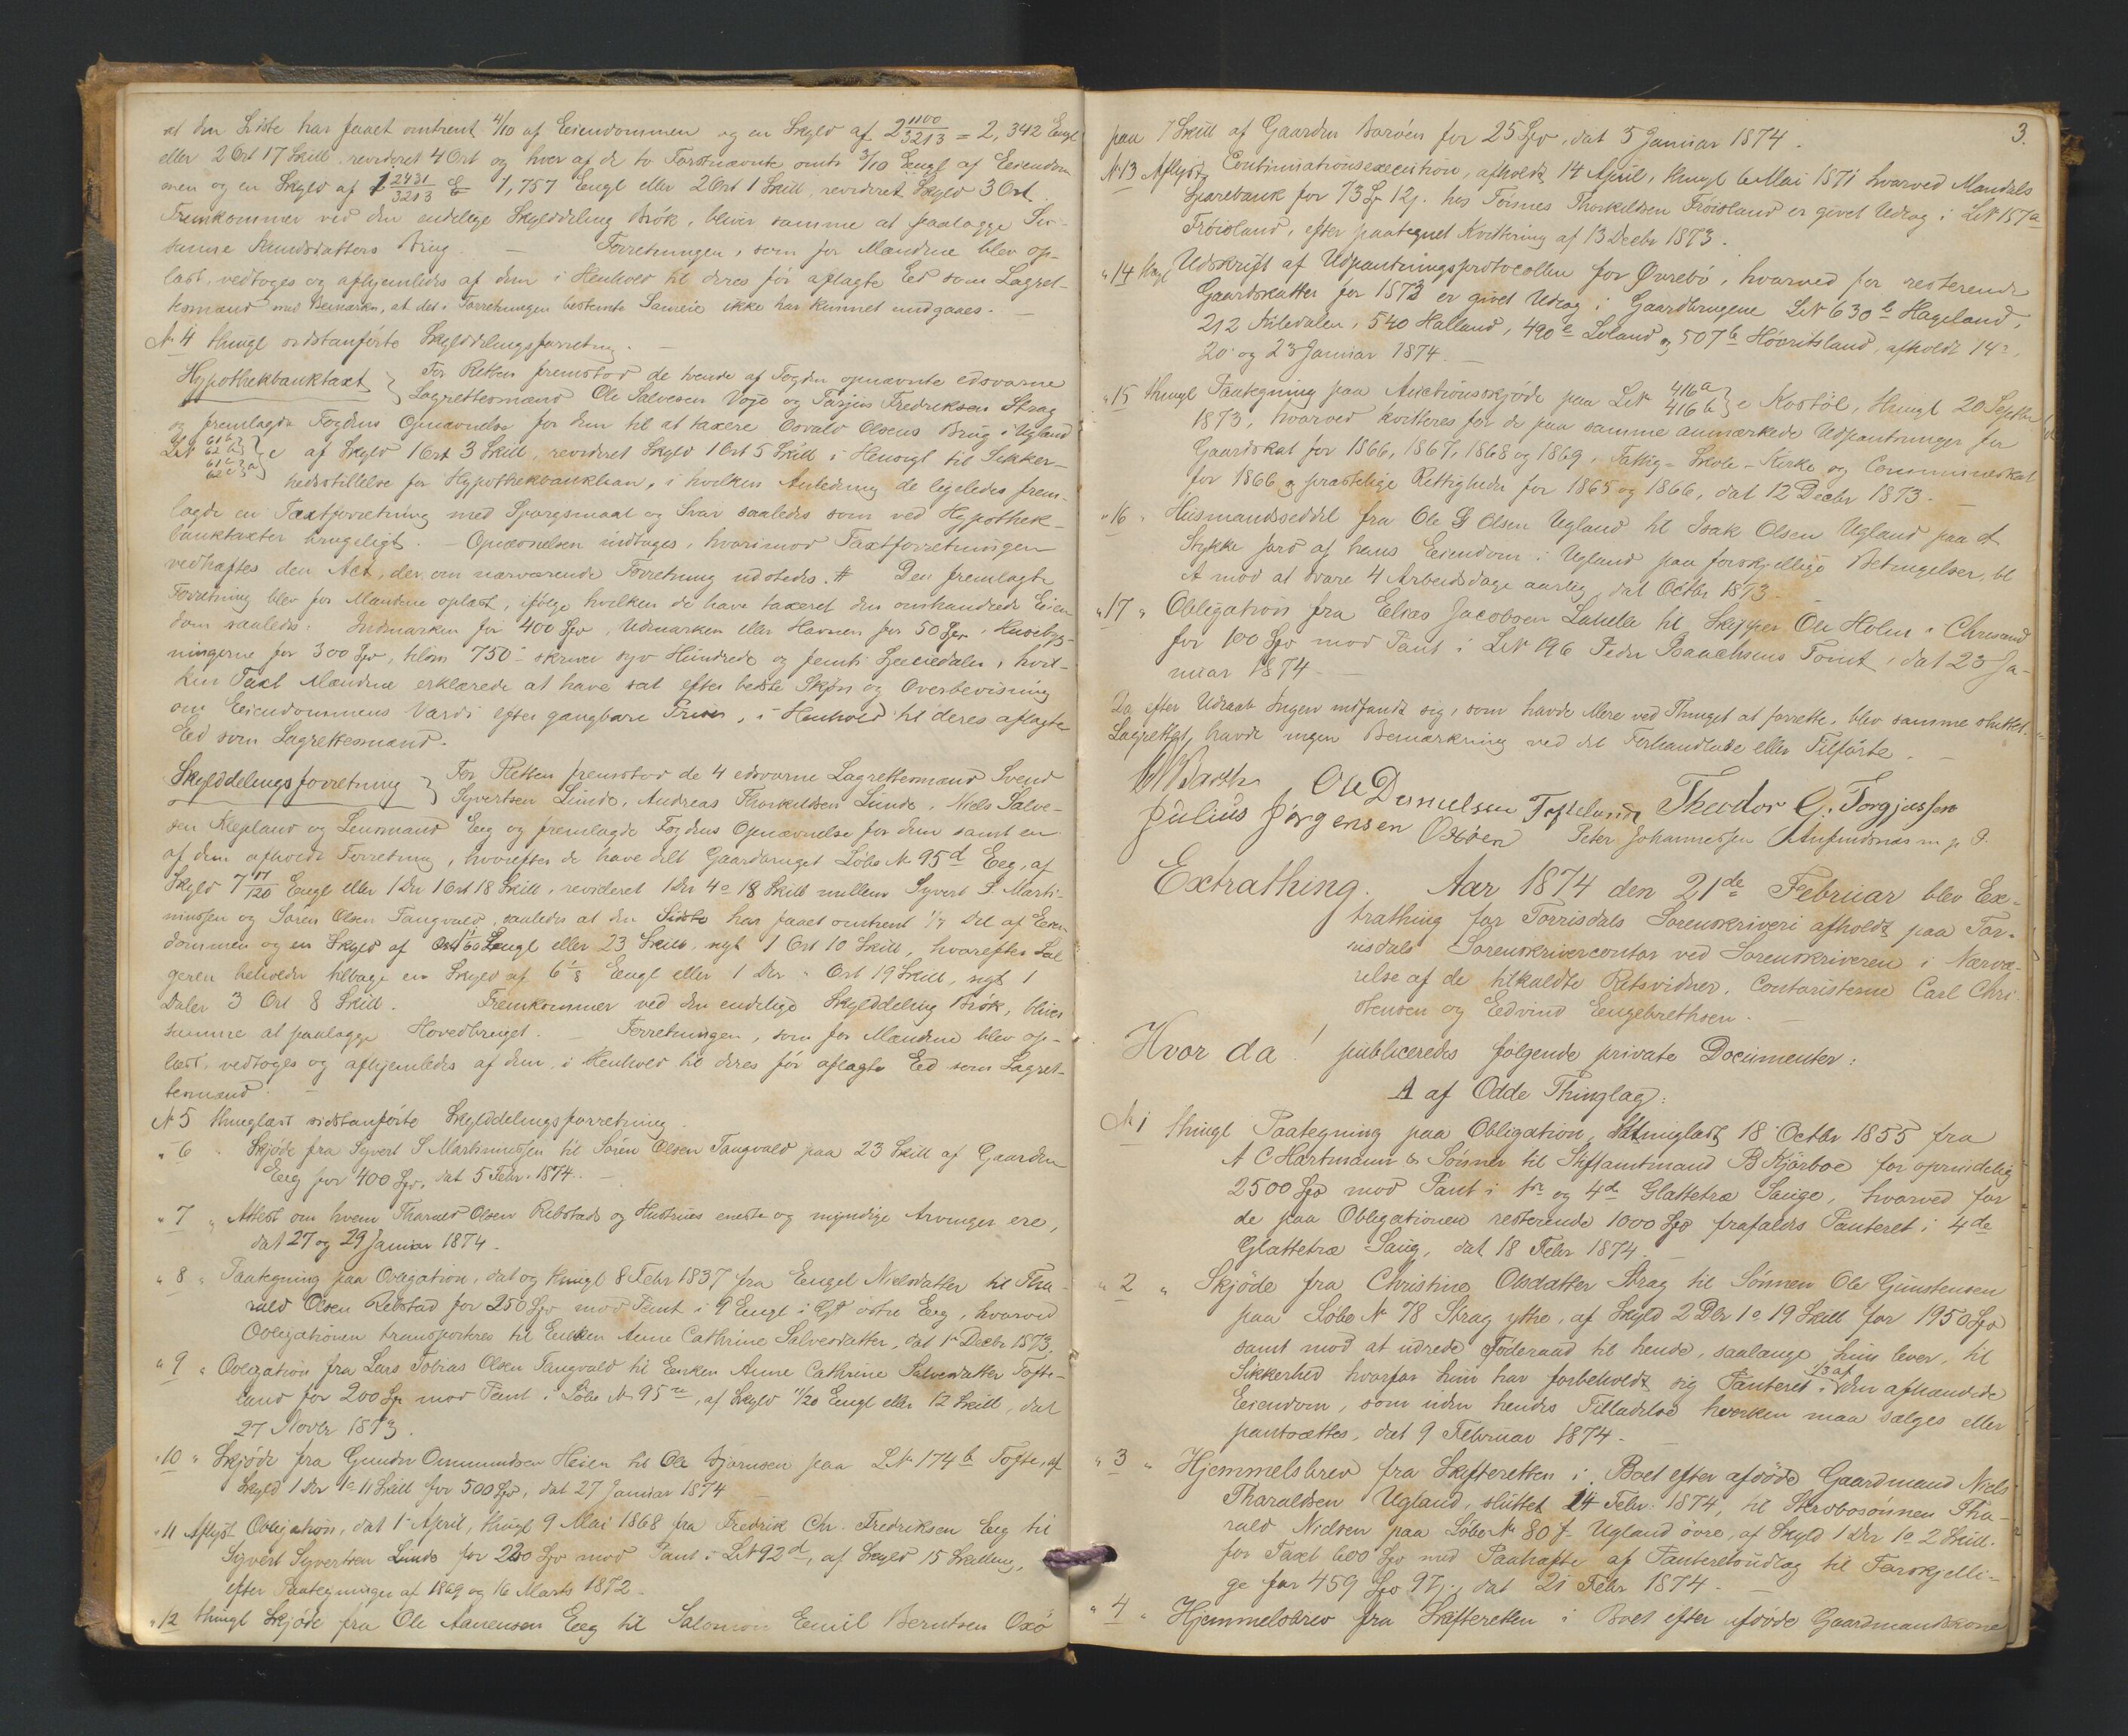 at den Sidste har faaet omtrent 4/10 af Eiendommen og en Skyld af 2 1100/3213 = 2,342 Engl
eller 2 Ort 17 Skill. revideret 4 Ort og hver af de to Førstnævnte omtr 3/10 af Eiendom
men og en Skyld af 1 2431/3213 1,757 Engl eller 2 Ort 1 Skill, revideret Skyld 3 Ort.
Fremkommer ved den endelige Skylddeling Brøk, bliver samme at paalægge
Brug — Forretningen, som for Mændene blev op-
læst, vedtoges og afhjemledes af dem i Henhold til deres før aflagte Ed som Lagret-
tesmænd med Bemærkn, at det i Forretningen bestemte Sameie ikke har kunnet undgaaes. —
N 4 thingl sidstanførte Skylddelingsforretning. —
Hypothekbanktaxt } For Retten fremstod de tvende af Fogden opnævnte edsvorne
Lagrettesmænd Ole Salvesen Voje og Tarjus Fredriksen Strag
og fremlagde Fogdens Opnævnelse for dem til at taxere Osvald Olsens Brug i Ugland
LN af Skyld 1 Ort 3 Skill, revideret Skyld 1 Ort 5 Skill i Hensigt til Sikker-
hedsstillelse for Hypothekbanklaan, i hvilken Anledning de ligeledes frem-
lagde en Taxtforretning med Spørgsmaal og Svar saaledes som ved Hypothek-
banktaxter brugeligt. — Opnævnelsen indtages, hvorimod Taxtforretningen
vedhæftes den Act, der om nærværende Forretning udstedes. # Den fremlagte
Forretning blev for Mændene oplæst, ifølge hvilken de have taxeret den omhandlede Eien
dom saaledes: Indmarken for 400 Spd, Udmarken eller Havnen for 50 Spd, Husebyg-
ningerne for 300 Spd, tilsm 750 - skriver syv Hundrede og femti Speciedaler, hvil-
ken Taxt Mændene erklærede at have sat efter bedste Skjøn og Overbevisning
om Eiendommens Værdi efter gangbare Priser, i Henhold til deres aflagte
Ed som Lagrettesmænd.
Skylddelingsforretning } For Retten fremstod de 4 edsvorne Lagrettesmænd Svend
Syvertsen Lunde, Andreas Thorkildsen Lunde, Niels Salve-
sen Klepland og Lensmand Eeg og fremlagde Fogdens Opnævnelse for dem samt en
af dem afholdt Forretning, hvorefter de have delt Gaardbruget Løbe N 95 d Eeg, af
Skyld 7 17/120 Engl eller 1 Dlr 1 Ort 18 Skill, revideret 1 Dlr 4 o 18 Skill mellem Syvert S. Marti-
niussen og Søren Olsen Tangvald, saaledes at den Sidste har faaet omtrent 1/7 Del af Eien
dommen og en Skyld af Engl eller 23 Skill, nyt 1 Ort 10 Skill, hvorefter Sæl
geren beholder tilbage en Skyld af 6 1/8 Engl eller 1 Dlr " Ort 19 Skill, nyt 1
Daler 3 Ort 8 Skill. Fremkommer ved den endelige Skylddeling Brøk, bliver
samme at paalægge Hovedbruget. — Forretningen, som for Mændene blev op-
læst, vedtoges og afhjemledes af dem, i Henhold til deres før aflagte Ed som Lagret-
tesmænd. —
N 5 thinglæst sidstanførte Skylddelingsforretning.
" 6 " Skjøde fra Syvert S Martiniussen til Søren Olsen Tangvald paa 23 Skill af Gaarden
Eeg for 400 Spd, dat 5 Febr. 1874. —
" 7 " Attest om hvem Tharald Olsen Rebstads og Hustrues eneste og myndige Arvinger ere,
dat 27 og 29 Januar 1874.
" 8 " Paategning paa Obligation, dat og thingl 8 Febr 1837 fra Engel Nielsdatter til Tha-
rald Olsen Rebstad for 250 Spd mod Pant i 9 Engl i østre Eeg, hvorved
Obligationen transporteres til Enken Anne Cathrine Salvesdatter, dat 1 Decbr 1873.
" 9 " Obligation fra Lars Tobias Olsen Tangvald til Enken Anne Cathrine Salvesdatter Tofte-
land for 200 Sp mod Pant i Løbe N 95, af Skyld 11/20 Engl eller 12 Skill, dat
27 Novbr 1873.
" 10 " Skjøde fra Gunder Ommundsen Heien til Ole Bjørnsen paa LN 174 b Tofte, af
Skyld 1 Dlr 1 o 11 Skill for 500 Spd, dat 27 Januar 1874 —
" 11 Aflyst Obligation, dat 1 April, thingl 9 Mai 1868 fra Fredrik Chr. Fredriksen Eeg til
Syvert Syvertsen Lunde for 220 Spd mod Pant i LN 92 d, af Skyld 15 Skilling,
efter Paategninger af 1869 og 16 Marts 1872.
" 12 thingl Skjøde fra Ole Aanensen Eeg til Salomon Emil Berntsen Oxø
3.
paa 7 Skill af Gaarden Barøen for 25 Spd, dat 5 Januar 1874.
N 13 Aflyst Continuationsexecution, afholdt 14 April, thingl 6 Mai 1871 hvorved Mandals
Sparebank for 73 Sp 12 j. hos Tønnes Thorkildsen Frøisland er givet Udlæg i LN 157 a
Frøisland, efter paategnet Kvittering af 13 Decbr 1873.
" 14 thingl Udskrift af Udpantningsprotocollen for Øvrebø, hvorved for resterende
Gaardskatter for 1873 er givet Udlæg i Gaardbrugene LN 630 b Hageland,
212 Stiledalen, 540 Halland, 490 e Loland og 507 b Høversland, afholdt 14,
20 og 23 Januar 1874. —
" 15 thingl Paategning paa Auctionsskjøde paa LN 416 a 416 b } e Kostøl, thingl 20 Septbr
1873, hvorved kvitteres for de paa samme anmærkede Udpantninger for
Gaardskat for 1866, 1867, 1868 og 1869, Fattig- Skole- Kirke og Communeskat
for 1866 og præstelige Rettigheder for 1865 og 1866, dat 12 Decbr 1873. —
" 16 " Husmandsseddel fra Ole G Olsen Ugland til Isak Olsen Ugland paa et
Stykke Jord af hans Eiendom i Ugland paa forskjellige Betingelser, bl
A mod at svare 4 Arbeidsdage aarlig, dat Octbr 1873.
" 17 " Obligation fra Elias Jacobsen Lahelle til Skipper Ole Holm i Chrsand
for 100 Spd mod Pant i LN 196 Peder Baachsens Tomt, dat 23 Ja-
nuar 1874. —
Da efter Udraab Ingen indfandt sig, som havde Mere ved Thinget at forrette, blev samme sluttet.
Lagrettet havde ingen Bemærkning ved det Forhandlede eller Tilførte. —
Barth Ole Danielsen Toftelund Theodor G. Torgjussen
Julius Jørgensen Oxøen Peter Johannessen m. p. P.
Extrathing. Aar 1874 den 21de Februar blev Ex-
trathing for Torrisdals Sorenskriveri afholdt paa Tor-
risdals Sorenskrivercontor ved Sorenskriveren i Nærvæ-
relse af de tilkaldte Retsvidner, Contoristerne Carl Chri-
stensen og Edvind Engebrethsen. —
Hvor da! publiceredes følgende private Documenter:
A af Odde Thinglag:
N 1 thingl Paategning paa Obligation, thinglæst 18 Octbr 1855 fra
A C Hartmann & Sønner til Stiftamtmand B Kjørboe for oprindelig
2500 Spd mod Pant i og 4de Glattetræ Sauge, hvorved for
de paa Obligationen resterende 1000 Spd frafaldes Panteret i 4de
Glattetræ Saug, dat 18 Febr 1874. —
" 2 " Skjøde fra Christine Olsdatter Strag til Sønnen Ole Gunstensen
paa Løbe N 78 Strag ytre, af Skyld 2 Dlr 1 o 19 Skill for 1950 Spd
samt mod at udrede Føderaad til hende, saalænge hun lever, til
Sikkerhed hvorfor hun har forbeholdt sig Panteret i 1/3 af den afhændede
Eiendom, som uden hendes Tilladelse hverken maa sælges eller
pantsættes, dat 9 Februar 1874. —
" 3 " Hjemmelsbrev fra Skifteretten i Boet efter afdøde Gaardmand Niels
Tharaldsen Ugland, sluttet 14 Febr. 1874, til Stervbosønnen Tha-
rald Nielsen paa Løbe N 80 f Ugland øvre, af Skyld 1 Dlr 1 o 2 Skill.
for Taxt 600 Spd med Paahæfte af Panteretsudlæg til Forskjelli-
ge for 459 Spd 97 j., dat 21 Febr 1874. —
" 4 " Hjemmelsbrev fra Skifteretten i Boet efter afdøde Gaardmandskone